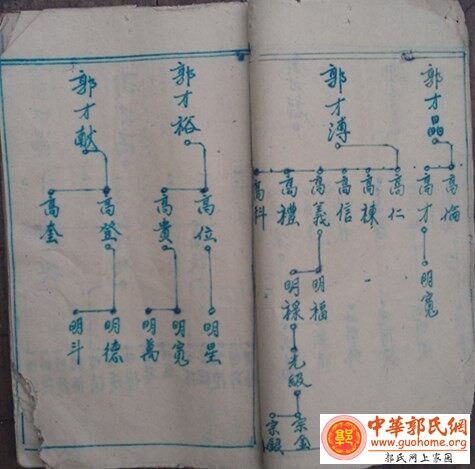 郭才晶
高倫
高才
明寬
郭才溥
高仁
高棟
高信
高義
高禮
高科
明福
明祿
光級
宗金
宗銀
郭才裕
高位
高貴
明星
明寬
明萬
郭才献
高登
高奎
明德
明斗
中華郭氏網
www.guohome.org
郭氏网上家园